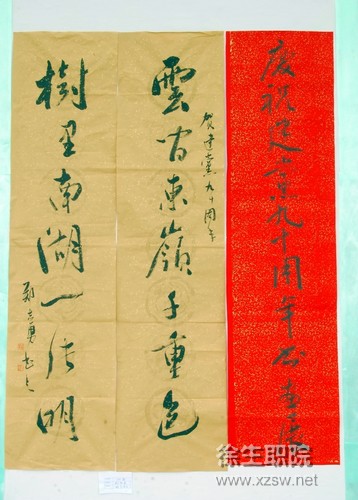 慶祝建黨九十周年书画展
賀建黨九十周年
雲间東嶺千重色
樹里南湖一片明
徐生职院
www.xzsw.net